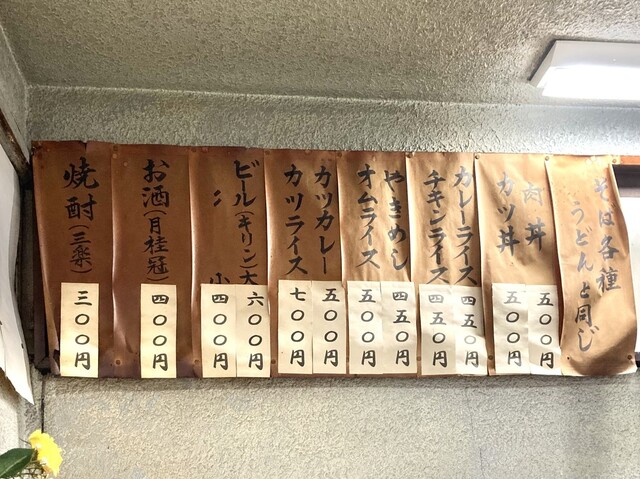 そば各種
うどんと同じ
肉丼
五〇〇円
カツ丼
五〇〇円
カレーライス
四五〇円
チキンライス
四五〇円
やきめし
四五〇円
オムライス
五〇〇円
カツカレー
五〇〇円
カツライス
七〇〇円
ビール(キリン)大
六〇〇円
〃 小
四〇〇円
お酒(月桂冠)
四〇〇円
焼酎(三楽)
三〇〇円